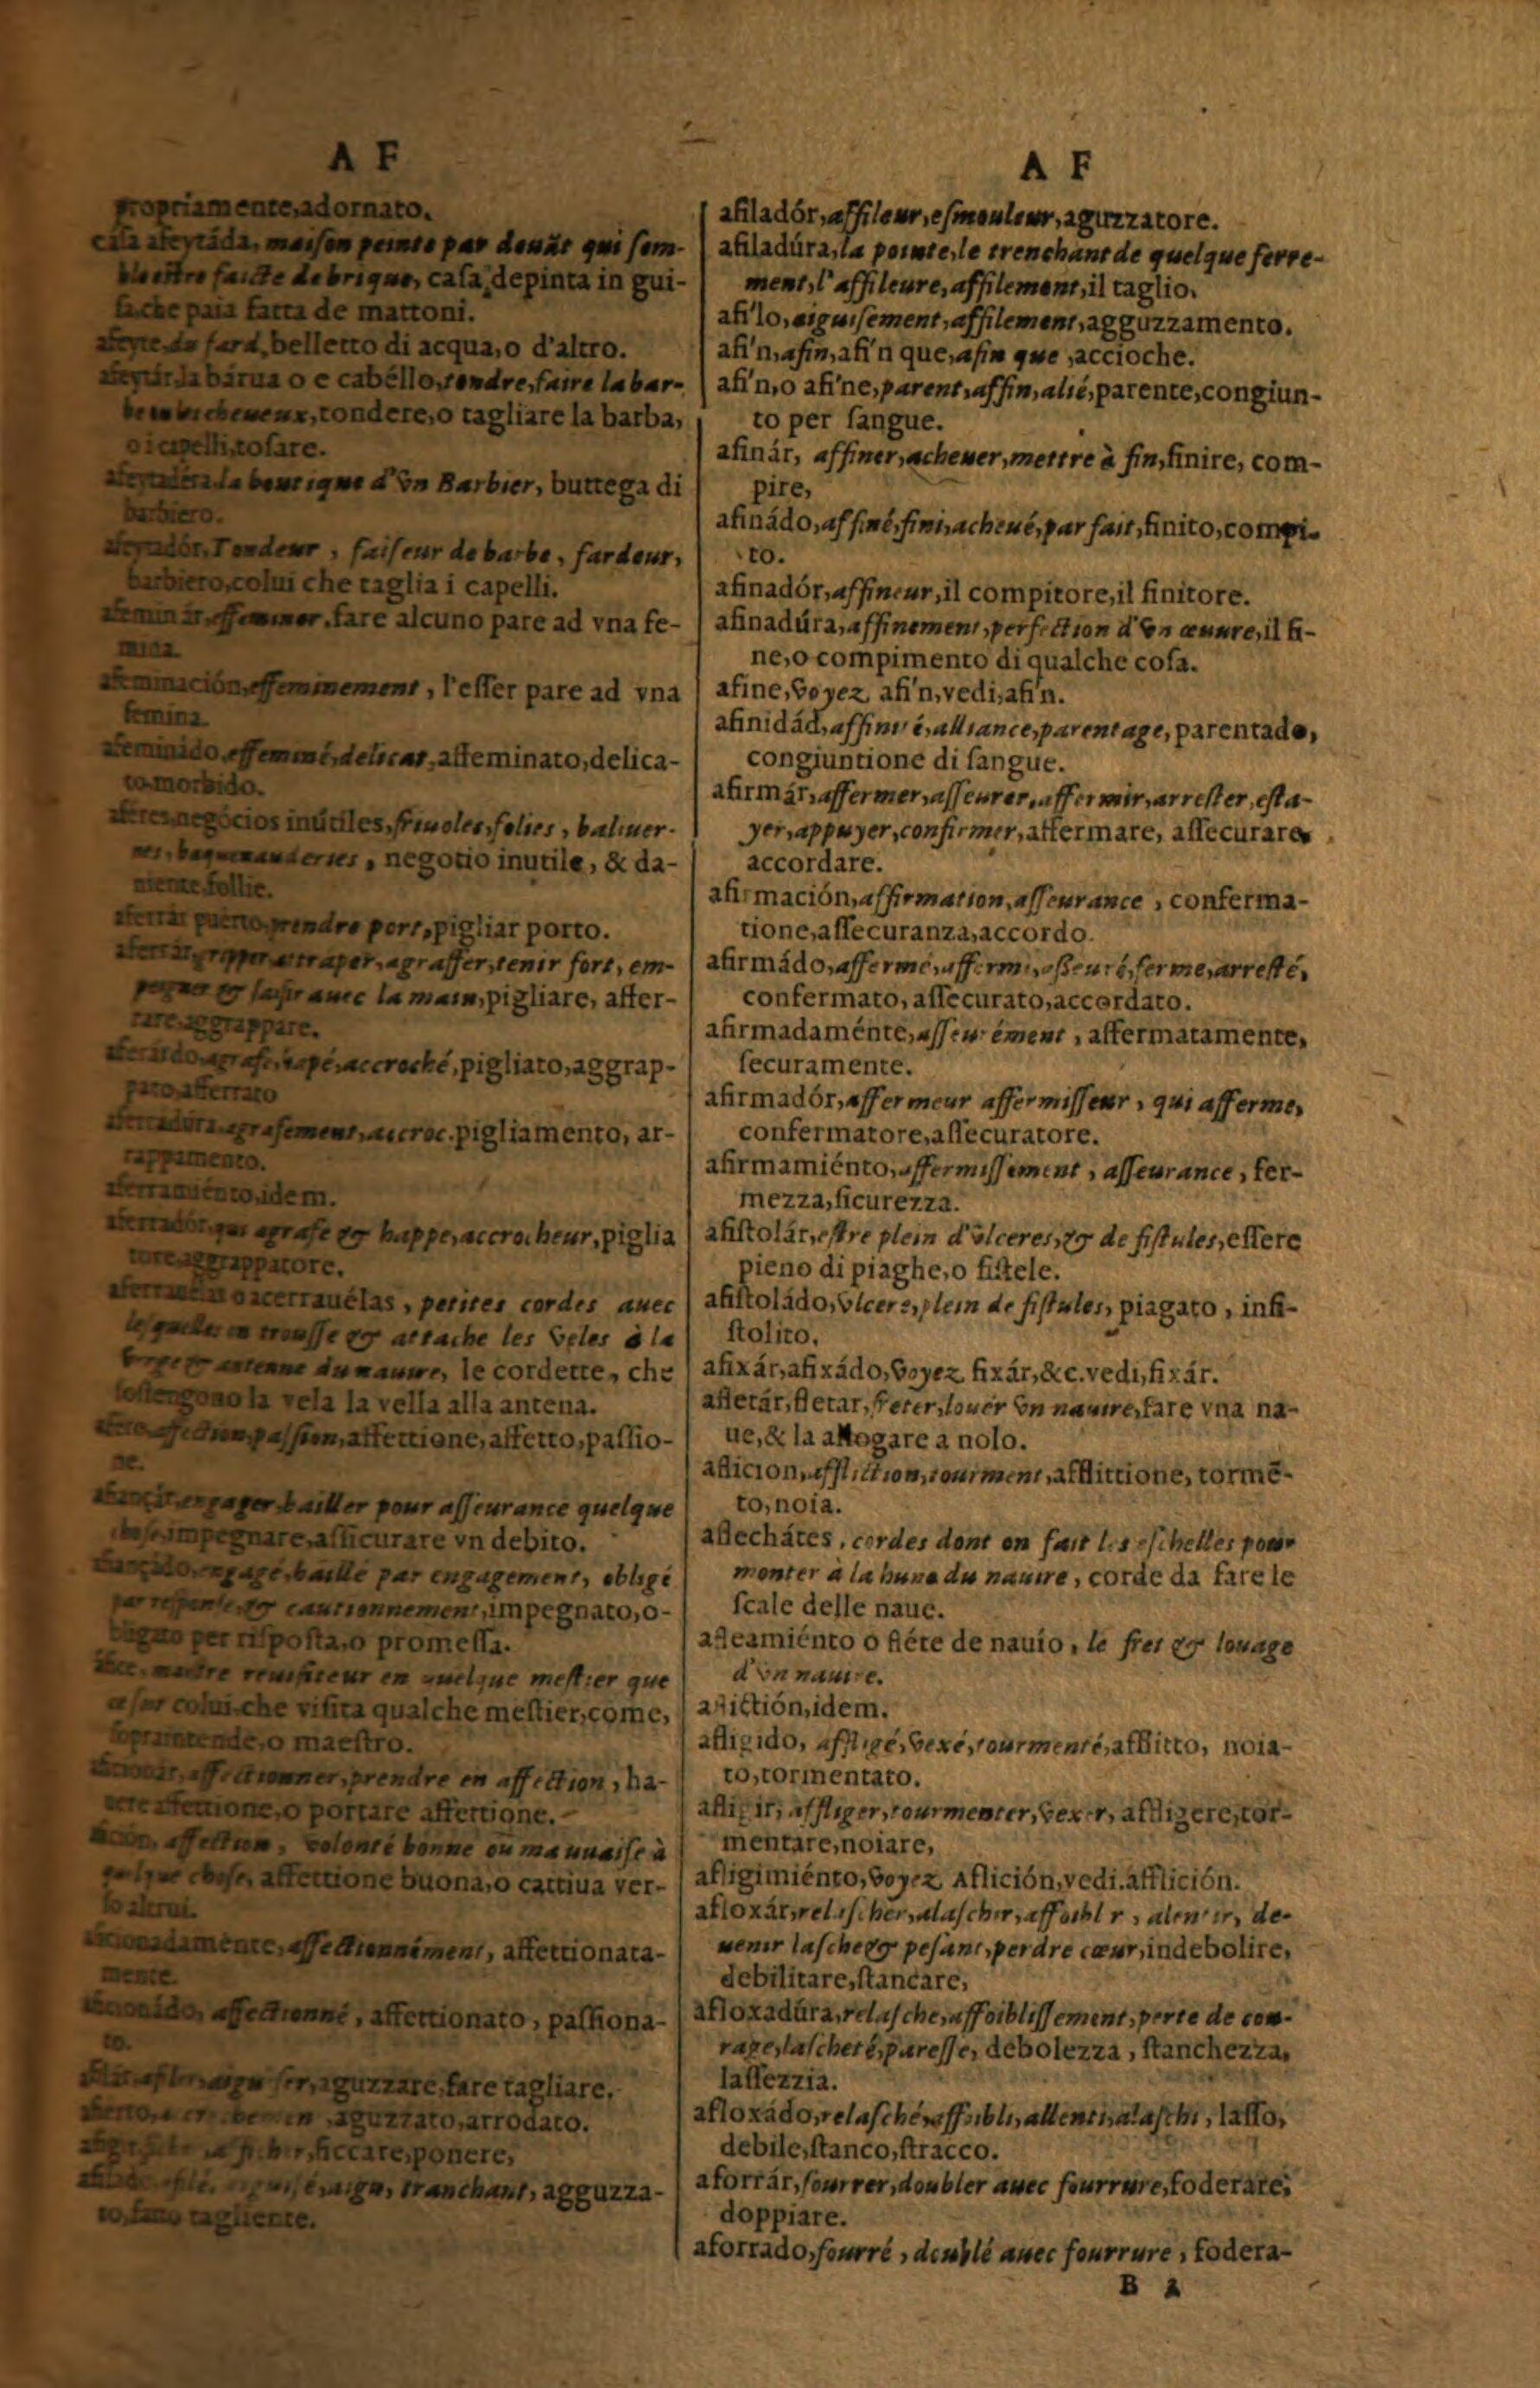 A F
propriamente,adornato.
casa afeytáda, maiſon peinte par deuãt qui ſem-
ble eſtre faicte de brique, caſa depinta in gui-
ſa che paia fatta de mattoni.
afeyte,du fard,belletto di acqua,o d'altro.
afeytár la bárua o e cabéllo,tondre,faire la bar-
be ou les cheueux,tondere,o tagliare la barba,
o i capelli,toſare.
la boutique d'vn Barbier, buttega di
barbiero.
Tondeur, faiſeur de barbe, fardeur,
barbiero,colui che taglia i capelli.
afeminár,effeminer,fare alcuno pare ad vna fe-
mina.
afeminación,effeminement, l'eſſer pare ad vna
femina.
effeminé,delicat,affeminato,delica-
to,morbido.
aféres,negócios inútiles,friuoles,folies, baliuer-
nes, baguenauderies, negotio inutile, & da-
niente,follie.
aferrár puérto,prendre port,pigliar porto.
aferrár,gripper,attraper,agraffer,tenir fort, em-
poigner & ſaiſir auec la main,pigliare, affer-
rare,aggrappare.
accroché,pigliato,aggrap-
pato,afferrato
aferradúra,agrafement,accroc.pigliamento, ar-
rappamento.
aferramiénto,idem.
aferradór,qui agrafe & happe,accrocheur,piglia
tore,aggrappatore.
o acerrauélas, petites cordes auec
leſquelles on trouſſe & attache les veles à la
verge & antenne du nauire, le cordette, che
ſoſtengono la vela la vella alla antena.
affection,paſſion,affettione,affetto,paſſio-
ne.
engager,bailler pour aſſeurance quelque
choſe,impegnare,aſſicurare vn debito.
engagé,baillé par engagement, obligé
& cautionnement,impegnato,o-
bligato per riſpoſta,o promeſſa.
maiſtre reuiſiteur en quelque meſtier que
ce ſoit colui,che viſita qualche meſtier,come,
ſopraintende,o maeſtro.
affectionner,prendre en affection, ha-
uere affettione,o portare affertione.
affection, volonté bonne ou mauuaiſe à
quelque choſe, affettione buona,o cattiua ver-
ſo altrui.
aficionadaménte,affectionnément, affettionata-
mente.
affectionné, affettionato, paſſiona-
to.
aguzzare,fare tagliare.
aguzzato,arrodato.
ficcare,ponere,
aigu, tranchant, agguzza-
to,fatto tagliente.
A F
afiladór,affileur,eſmouleur,aguzzatore.
afiladúra,la pointe,le trenchant de quelque ferre-
ment,l'affileure,affilement,il taglio.
afi'lo,aiguiſement,affilement,agguzzamento.
afi'n,afin,afi'n que,afin que ,accioche.
afi'n,o afi'ne,parent,affin,alié,parente,congiun-
to per ſangue.
afinár, affiner,acheuer,mettre à fin,finire, com-
pire,
afinádo,affiné,fini,acheué,parfait,finito,compi-
to.
afinadór,affineur,il compitore,il finitore.
afinadúra,affinement,perfection d'vn œuure,il fi-
ne,o compimento di qualche coſa.
afine,voyez afi'n,vedi,afi'n.
afinidád,affinité,alliance,parentage, parentado,
congiuntione di ſangue.
afirmár,affermer,aſſeurer,affermir,arreſter,eſta-
yer,appuyer,confirmer,affermare, aſſecurare,
accordare.
afirmación,affirmation,aſſeurance, conferma-
tione,aſſecuranza,accordo.
afirmádo,affermé,affermi,aſſeuré,ferme,arreſté,
confermato, aſſecurato,accordato.
afirmadaménte,aſſeurément, affermatamente,
ſecuramente.
afirmadór,affermeur affermiſſeur, qui afferme,
confermatore,aſſecuratore.
afirmamiénto,affermiſſement, aſſeurance, fer-
mezza,ſicurezza.
afiſtolár,eſtre plein d'vlceres,& de fiſtules,eſſere
pieno di piaghe,o fiſtele.
afiſtoládo,vlceré,plein de fiſtules, piagato, infi-
ſtolito.
afixár,afixádo,voyez fixár,&c.vedi,fixár.
afletár,fletar,freter,louër vn nauire,fare vna na-
ue,& la allogare a nolo.
aflicion,affliction,tourment,afflittione, tormẽ-
to,noia.
aflechátes, cordes dont on fait les eſchelles pour
monter à la hune du nauire, corde da fare le
ſcale delle naue.
afleamiénto o fléte de nauío, le fret & louage
d'vn nauire.
aflictión,idem.
afligido, affligé,vexé,tourmenté,afflitto, noia-
to,tormentato.
afligir, affliger,tourmenter,vexer, affligere,tor-
mentare,noiare,
afligimiénto,voyez Aflición,vedi.afflición.
afloxár,relaſcher,alaſchir,affoiblir, alentir, de-
uenir laſche & peſant,perdre cœur,indebolire,
debilitare,ſtancare,
afloxadúra,relaſche,affoibliſſement,perte de cou-
rage,laſcheté,pareſſe, debolezza, ſtanchezza,
laſſezzia.
afloxádo,relaſché,affoibli,allenti,alaſchi, laſſo,
debile,ſtanco,ſtracco.
aforrár,fourrer,doubler auec fourrure,foderare,
doppiare.
aforrado,fourré, doublé auec fourrure, fodera-
B 2